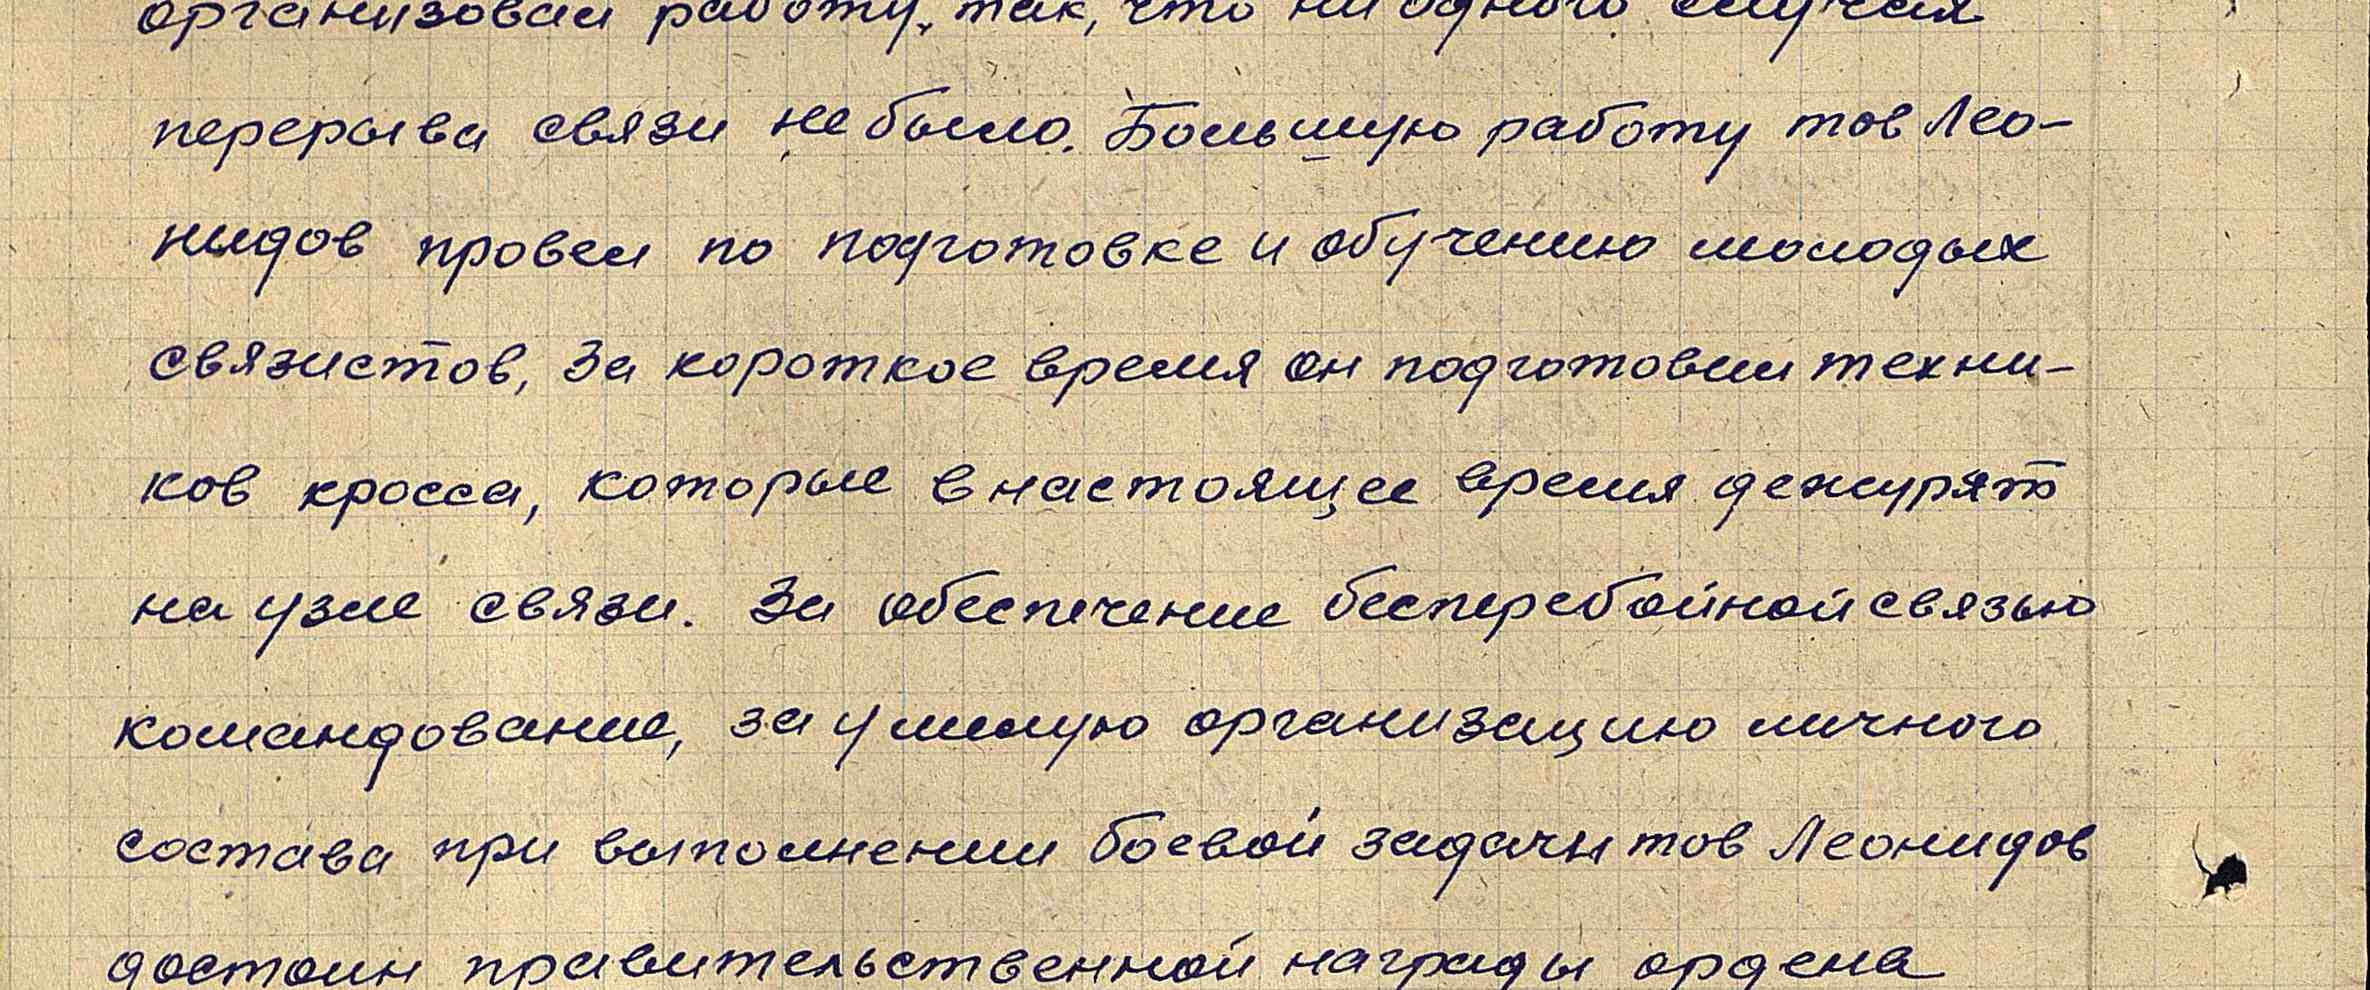 организовал работу, так, что ни одного случая
перерыва связи не было. Большую работу тов Лео-
нидов провел по подготовке и обучению молодых
связистов, За короткое время он подготовил техни-
ков кросса, которые в настоящее время дежурят
на узле связи. За обеспечение бесперебойной связью
командование, за умелую организацию личного
состава при выполнении боевой задачи тов Леонидов
достоин правительственной награды ордена